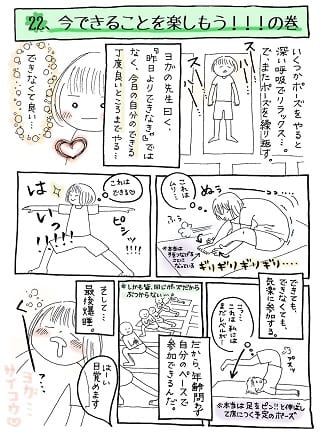 22、今できることを楽しもう!!!の巻
いくつかポーズをやると
深い呼吸でリラックス…。
で、またポーズを繰り返す。
ヨガの先生曰く、
『昨日よりできなきゃ』では
なく、今日の自分のできる
丁度良いところまでやる…
できなくて良い…
ぬぅ
これは
ムリ…
ふぅ
ギリギリギリギリ…
これは
できる♡
ピシッ
はいっ!!!!!
できても、
できなくても、
気楽に参加する。
っ…これは、私には
まだレベルが
プスッ
※本当は足をピン!!と伸ばし
て床につく予定のポーズ
※しかも皆、同じポーズだから
ぶつからない…。
だから、年齢問わず
自分のペースで
参加できるんだ。
そして…
最後爆睡。
はーい
目覚めます
ヨガ…
サイコウ♡